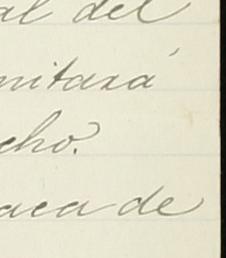 al del
nitará
cho.
aca de